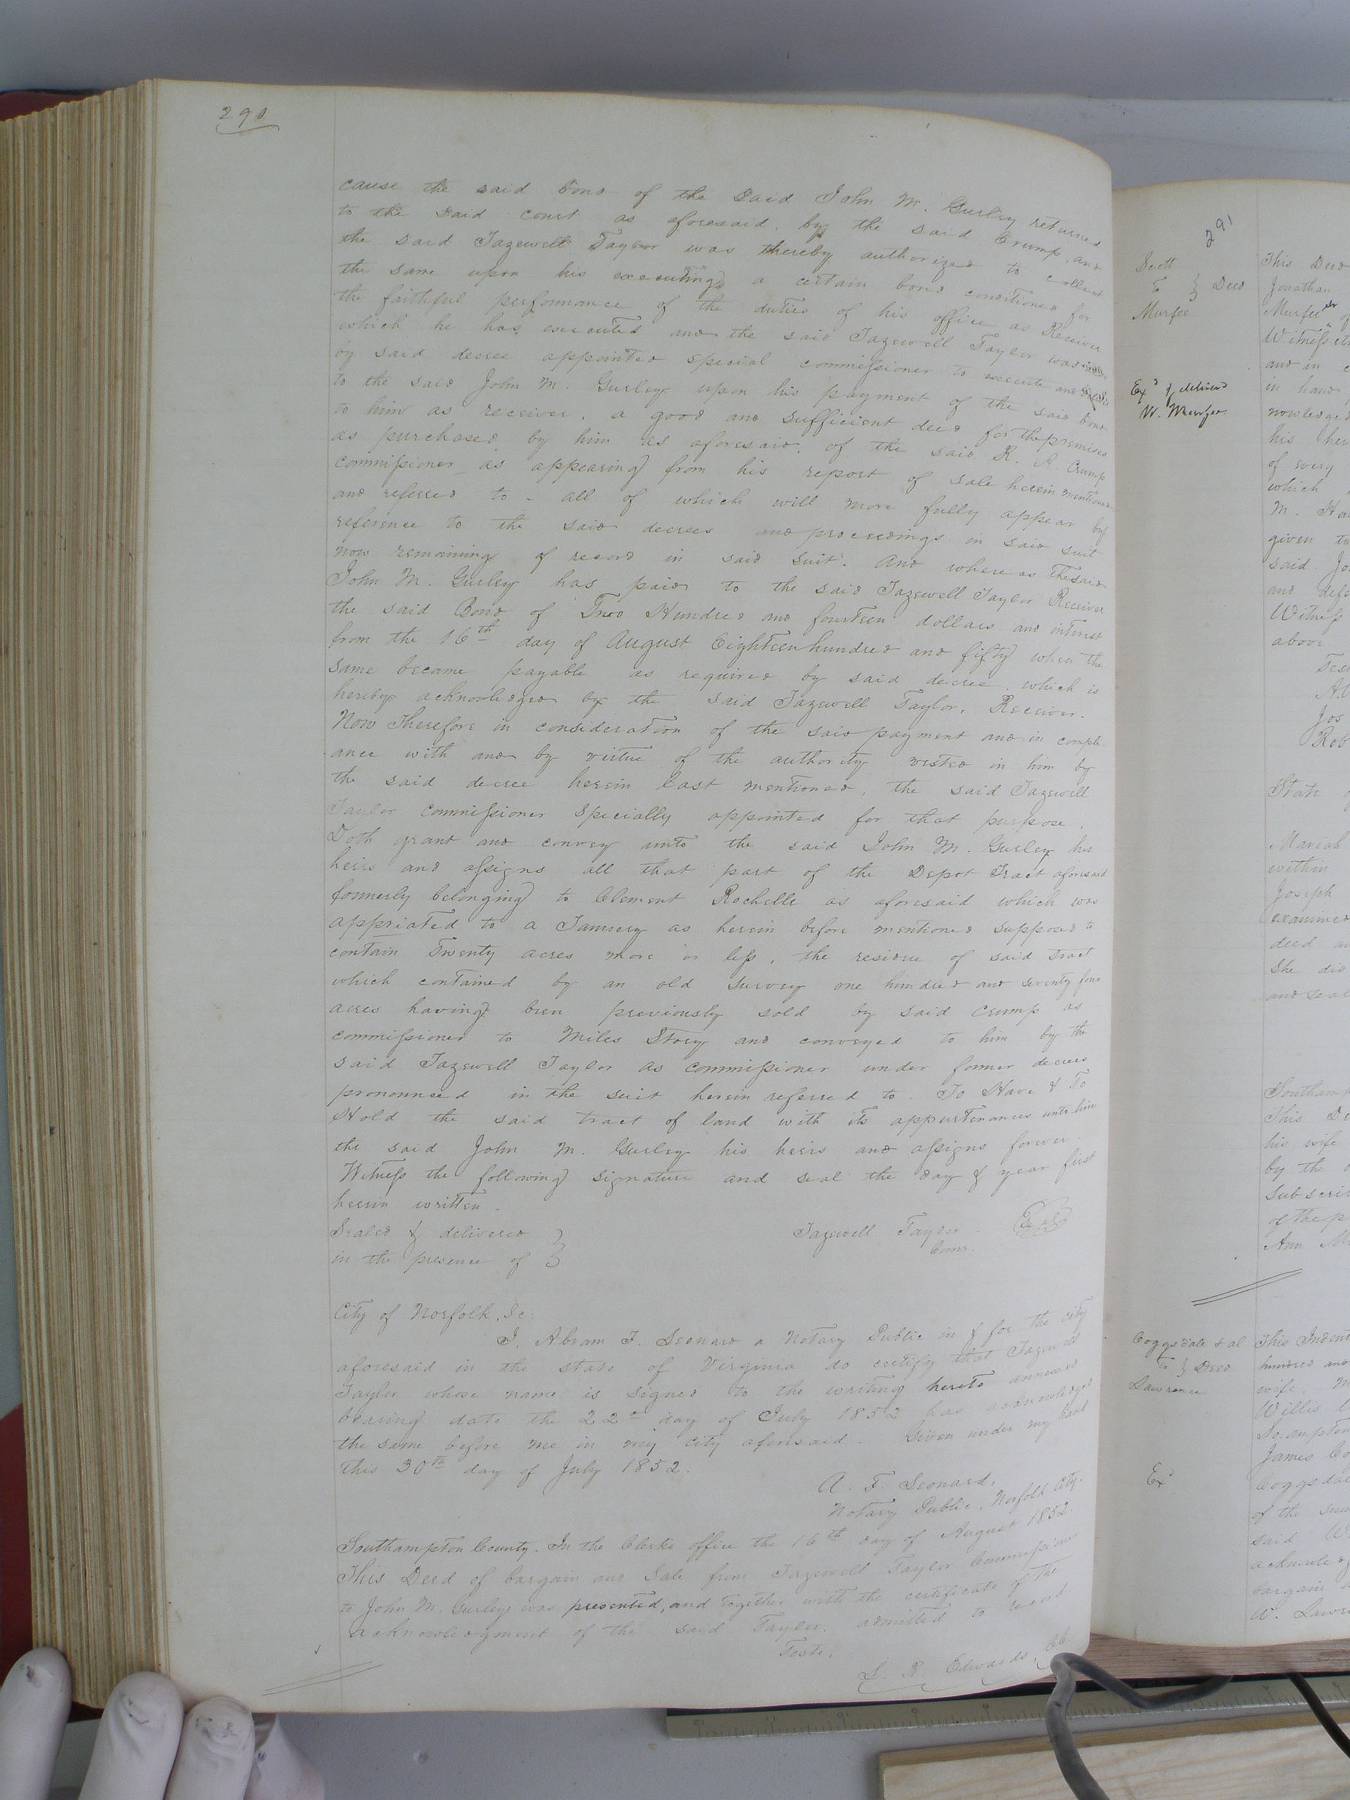 290
cause the said bond of the said John M. Gurley returned
to the said court as aforesaid, by the said Crump, and
the said Tazewell Taylor was thereby authorized to collect
the same upon his executing a certain bond conditioned for
the faithful performance of the duties of his office as Receiver
which he has executed and the said Tazewell Taylor was
by said decree appointed special commissioner to execute and
to the said John M. Gurley upon his payment of the said bond
to him as receiver, a good and sufficient deed for the premises
as purchased by him as aforesaid, of the said R. A. Crump
commissioner as appearing from his report of sale herein mentioned
and referred to - all of which will more fully appear by
reference to the said decrees and proceedings in said suit
now remaining of record in said suit. And whereas the said
John M. Gurley has paid to the said Tazewell Taylor Receiver
the said Bond of Two Hundred and fourteen dollars and interest
from the 16th day of August Eighteen hundred and fifty when the
same became payable as required by said decree, which is
hereby acknowledged by the said Tazewell Taylor, Receiver.
Now Therefore in consideration of the said payment and in compli-
ance with and by virtue of the authority vested in him by
the said decree herein last mentioned, the said Tazewell
Taylor commissioner Specially appointed for that purpose.
Doth grant and convey unto the said John M. Gurley his
heirs and assigns all that part of the Depot Tract aforesaid
formerly belonging to Clement Rochelle as aforesaid which was
appriated to a Tannery as herein before mentioned supposed to
contain Twenty acres more or less, the residue of said tract
which contained by an old survey one hundred and seventy four
acres having been previously sold by said Crump as
commissioner to Miles Story and conveyed to him by the
said Tazewell Taylor as commissioner under former decree
pronounced in the suit herein referred to. To Have & To
Hold the said tract of land with its appurtenances unto him
the said John M. Gurley his heirs and assigns forever.
Witness the following signature and seal the day & year first
herein written.
Sealed & delivered }
in the presence of }
Tazewell Taylor Seal
Comr.
City of Norfolk, Sc.
I, Abram F. Leonard a Notary Public in & for the city
aforesaid in the state of Virginia do certify that Tazewell
Taylor whose name is signed to the writing hereto annexed
bearing date the 22nd day of July 1852 has acknowledged
the same before me in my city aforesaid. Given under my hand
this 30th day of July 1852.
A. F. Leonard,
Notary Public, Norfolk City.
Southampton County. In the Clerks office the 16th day of August 1852
This Deed of bargain and Sale from Tazewell Taylor Commissioner
to John M. Gurley was presented, and together with the certificate of the
acknowledgment of the said Taylor, admitted to record
Teste,
L. R. Edwards, CC
291
Scott
To } Deed
Murfee
Exd & delived
W. Murfee
This Deed
Jonathan
Murfee
Witnesseth
and in
in hand
nowledged
his heirs
of every
which
M.
given to
said Jo
and
Witness
above
Tes
Jos
Rob
State
Mariah
within
Joseph
examined
deed
She
and seal
Southam
This D
his wife
by the
subscri
of the p
Ann M
Coggsdale & al
To } Deed
Lawrence
Exd
This Indent
hundred and
wife,
Willis
James Co
Coggsdale
of the
said W
bargain
W. Lawr